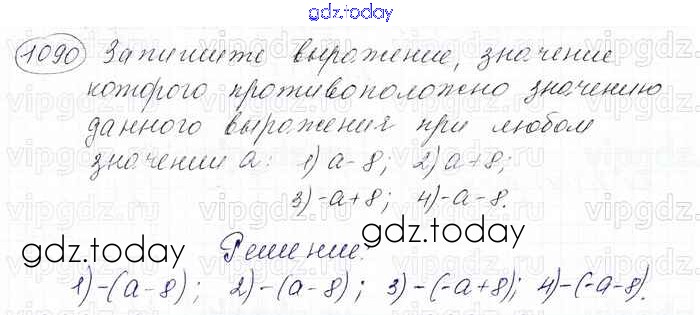 gdz.today
1090 Запишите выражение, значение
которого противоположно значению
данного выражения при любом
значении a: 1) a-8; 2) a+8;
3) -a+8; 4) -a-8.
gdz.today
gdz.today
Решение:
1) -(a-8); 2) -(a-8); 3) -(-a+8); 4) -(-a-8).